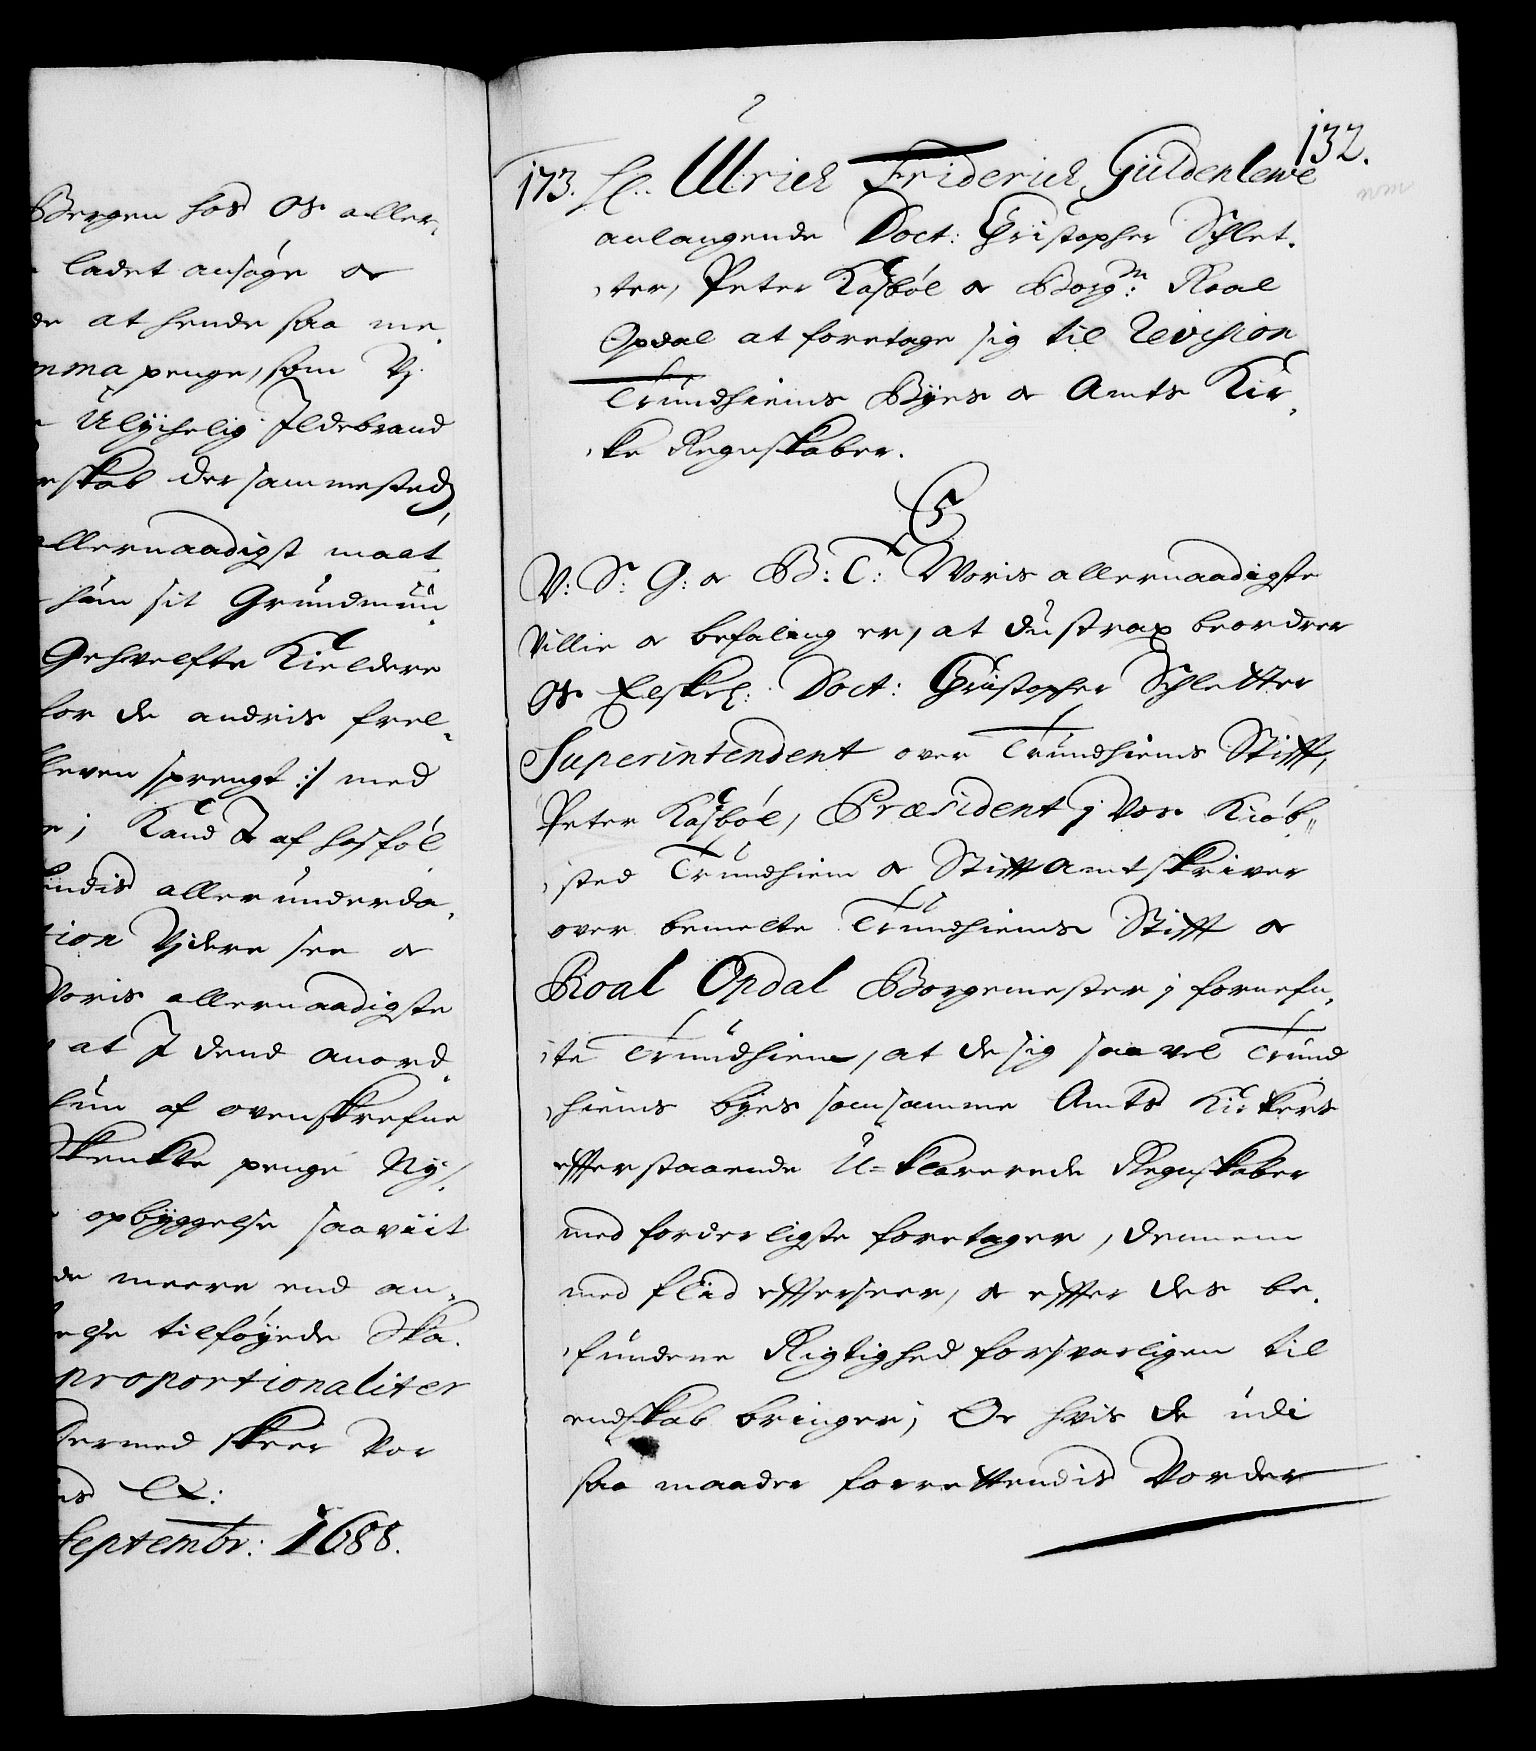 Bergen hos Os aller,
ladet ansøge oc
de at hende saa me,
mma penge, som Vj
Ulÿchelig Ildebrand
skab dersammesteds,
allernaadigst maat,
hun sit Grundmüü,
Gehvelfte Kieldere
for de andris frel,
bleven sprengt :/ med
j Kand I af hosføl
endis allerunderda,
tion Vjdere see oc
Voris allernaadigste
at I dend anord,
hun af ovenskrefne
skenkte penge Nÿ,
opbÿggelse saaviit
de meere end an,
else tilføÿede Ska,
proportionaliter
dermed skeer Vor
is &c:
Septembr: 1688.
132.
173. H. Ulrich Friderich Güldenlewe
anlangende Doct: Christopher Schlet,
ter, Peter Kasbøl oc Borgm: Roal
Opdal at foretage sig til Revision
Trundhiems Bÿes oc Amts Kir,
ke Regnskaber.
C5
V: S: G: oc B: T: Woris allernaadigste
Villie oc befaling er, at du strax beordrer
Os Elskel: Doct: Christopher Schletter
Superintendent over Trundhiems Stifft,
Peter Kasbøl, Præsident j Vor Kiøb,,
sted Trundhiem oc Stifftamtskriver
over bemelte Trundhiems Stifft oc
Roal Opdal Borgemester j fornefn,
te Trundhiem, at de sig saavel Trund
hiems bÿes som samme Amts Kirkers
effterstaaende U=klarerede Regnskaber
med forderligste foretager, dennem
med flid effterseer, oc effter des be,
fundene Rigtighed forsvarligen til
endskab bringer; Oc hvis de udi
saa maader forrettendis Vorder